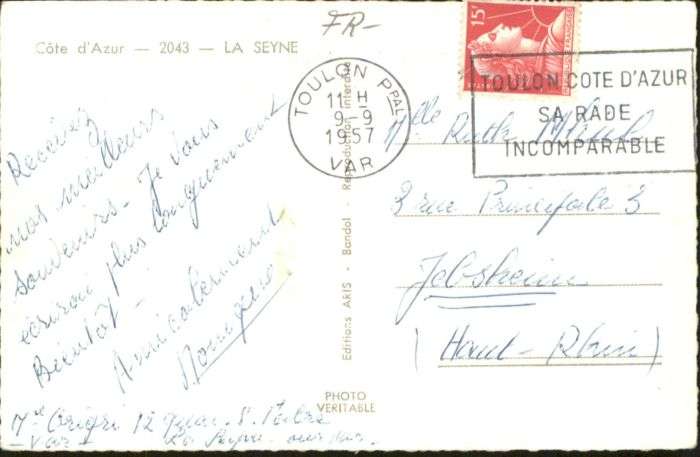 FR-
Côte d'Azur — 2043 — LA SEYNE
15F
TOULON PPAL
11 H
9-9
1957
VAR
TOULON COTE D'AZUR
SA RADE
INCOMPARABLE
Recevez
nos meilleurs
souvenirs - Je vous
écrirai plus longuement
Bientôt -
Amicalement
Monique
Mlle Ruth
3 rue Principale 3
Jebsheim
(Haut-Rhin)
Editions ARIS - Bandol - Reproduction interdite
PHOTO
VERITABLE
12 Quai St
- Var - La Seyne sur mer -